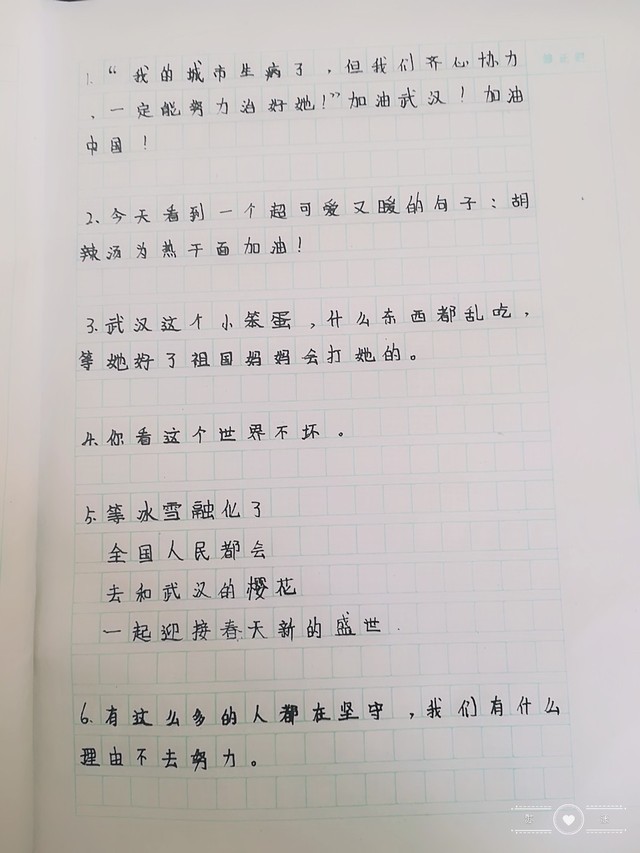 1.“我的城市生病了，但我们齐心协力
，一定能努力治好她！”加油武汉！加油
中国！
2、今天看到一个超可爱又暖的句子：胡
辣汤为热干面加油！
3.武汉这个小笨蛋，什么东西都乱吃，
等她好了祖国妈妈会打她的。
4.你看这个世界不坏。
5.等冰雪融化了
全国人民都会
去和武汉的樱花
一起迎接春天新的盛世.
6.有这么多的人都在坚守，我们有什么
理由不去努力。